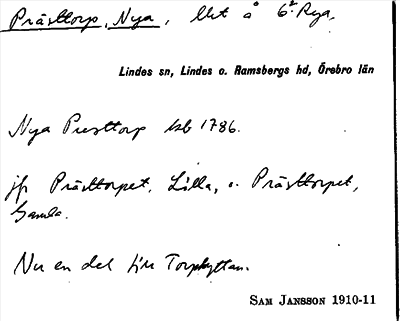 Prästtorp, Nya, lht å 6:2 Rya.
Lindes sn, Lindes o. Ramsbergs hd, Örebro län
Nya Presttorp hsb 1786.
jfr Prästtorpet, Lilla, o. Prästtorpet,
Gamla.
Nu en del från Torphyttan.
SAM JANSSON 1910-11